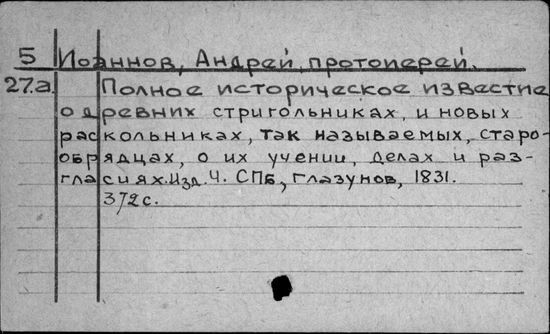 5 Иоаннов, Андрей, протоперей.
27.а. Полное историческое известие
о древних стригольниках, и новых
раскольниках, так называемых, старо-
обрядцах, о их учении, делах и раз-
гласиях. Изд. 4. СПБ, Глазунов, 1831.
372 с.